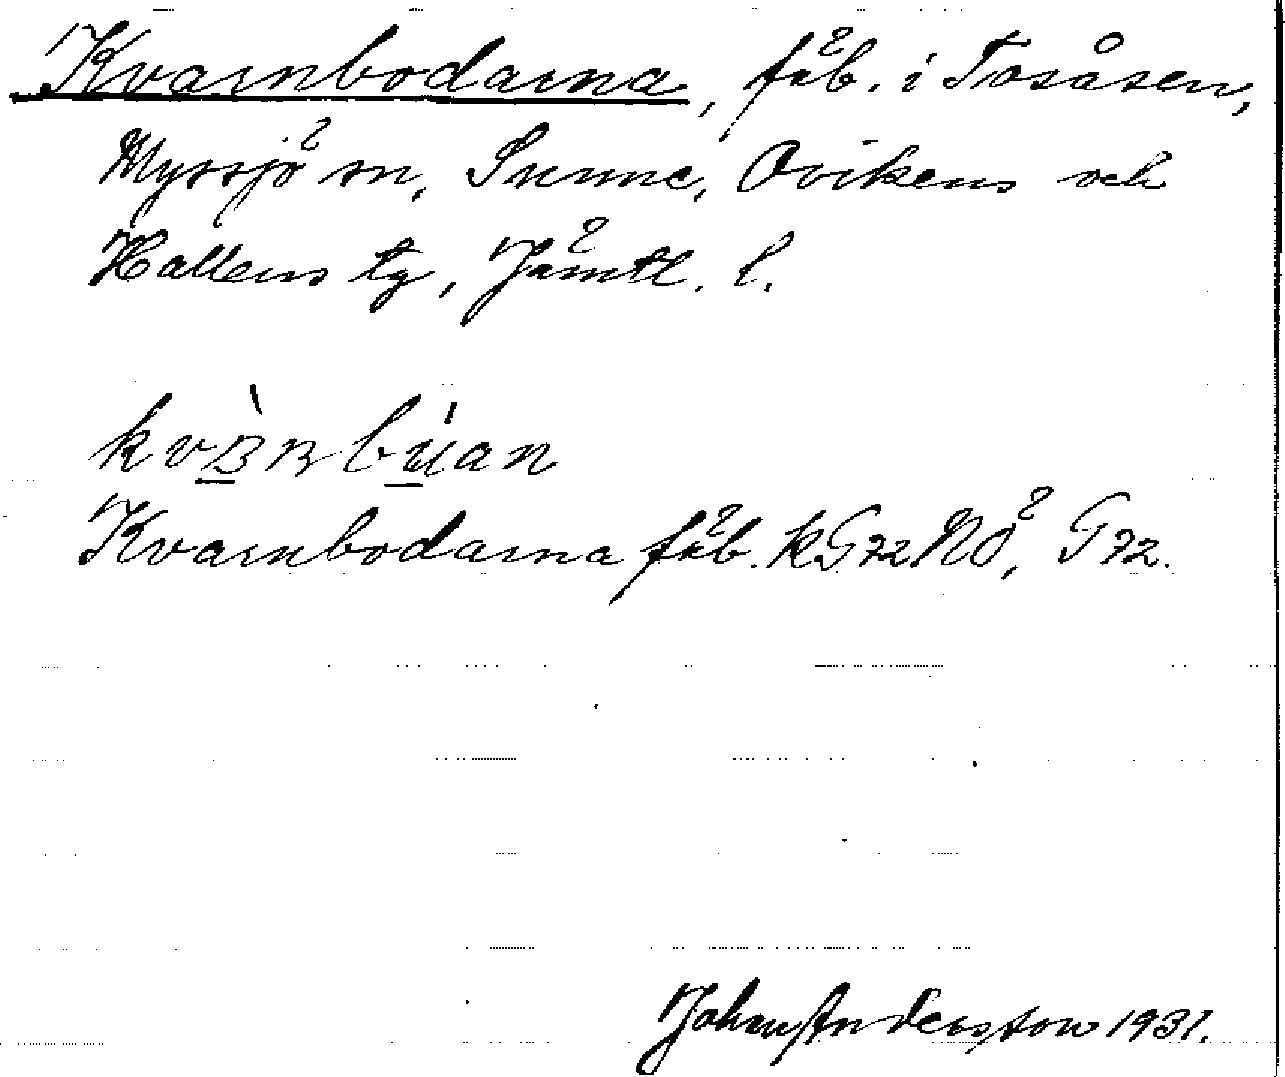 Kvarnbodarna, fäb. i Tosåsen,
Myssjö sn, Sunne, Ovikens och
Hallens tg, Jämtl. l.
Kvarnbodarna fäb. KG72NÖ, G72.
Johan Andersson 1931.